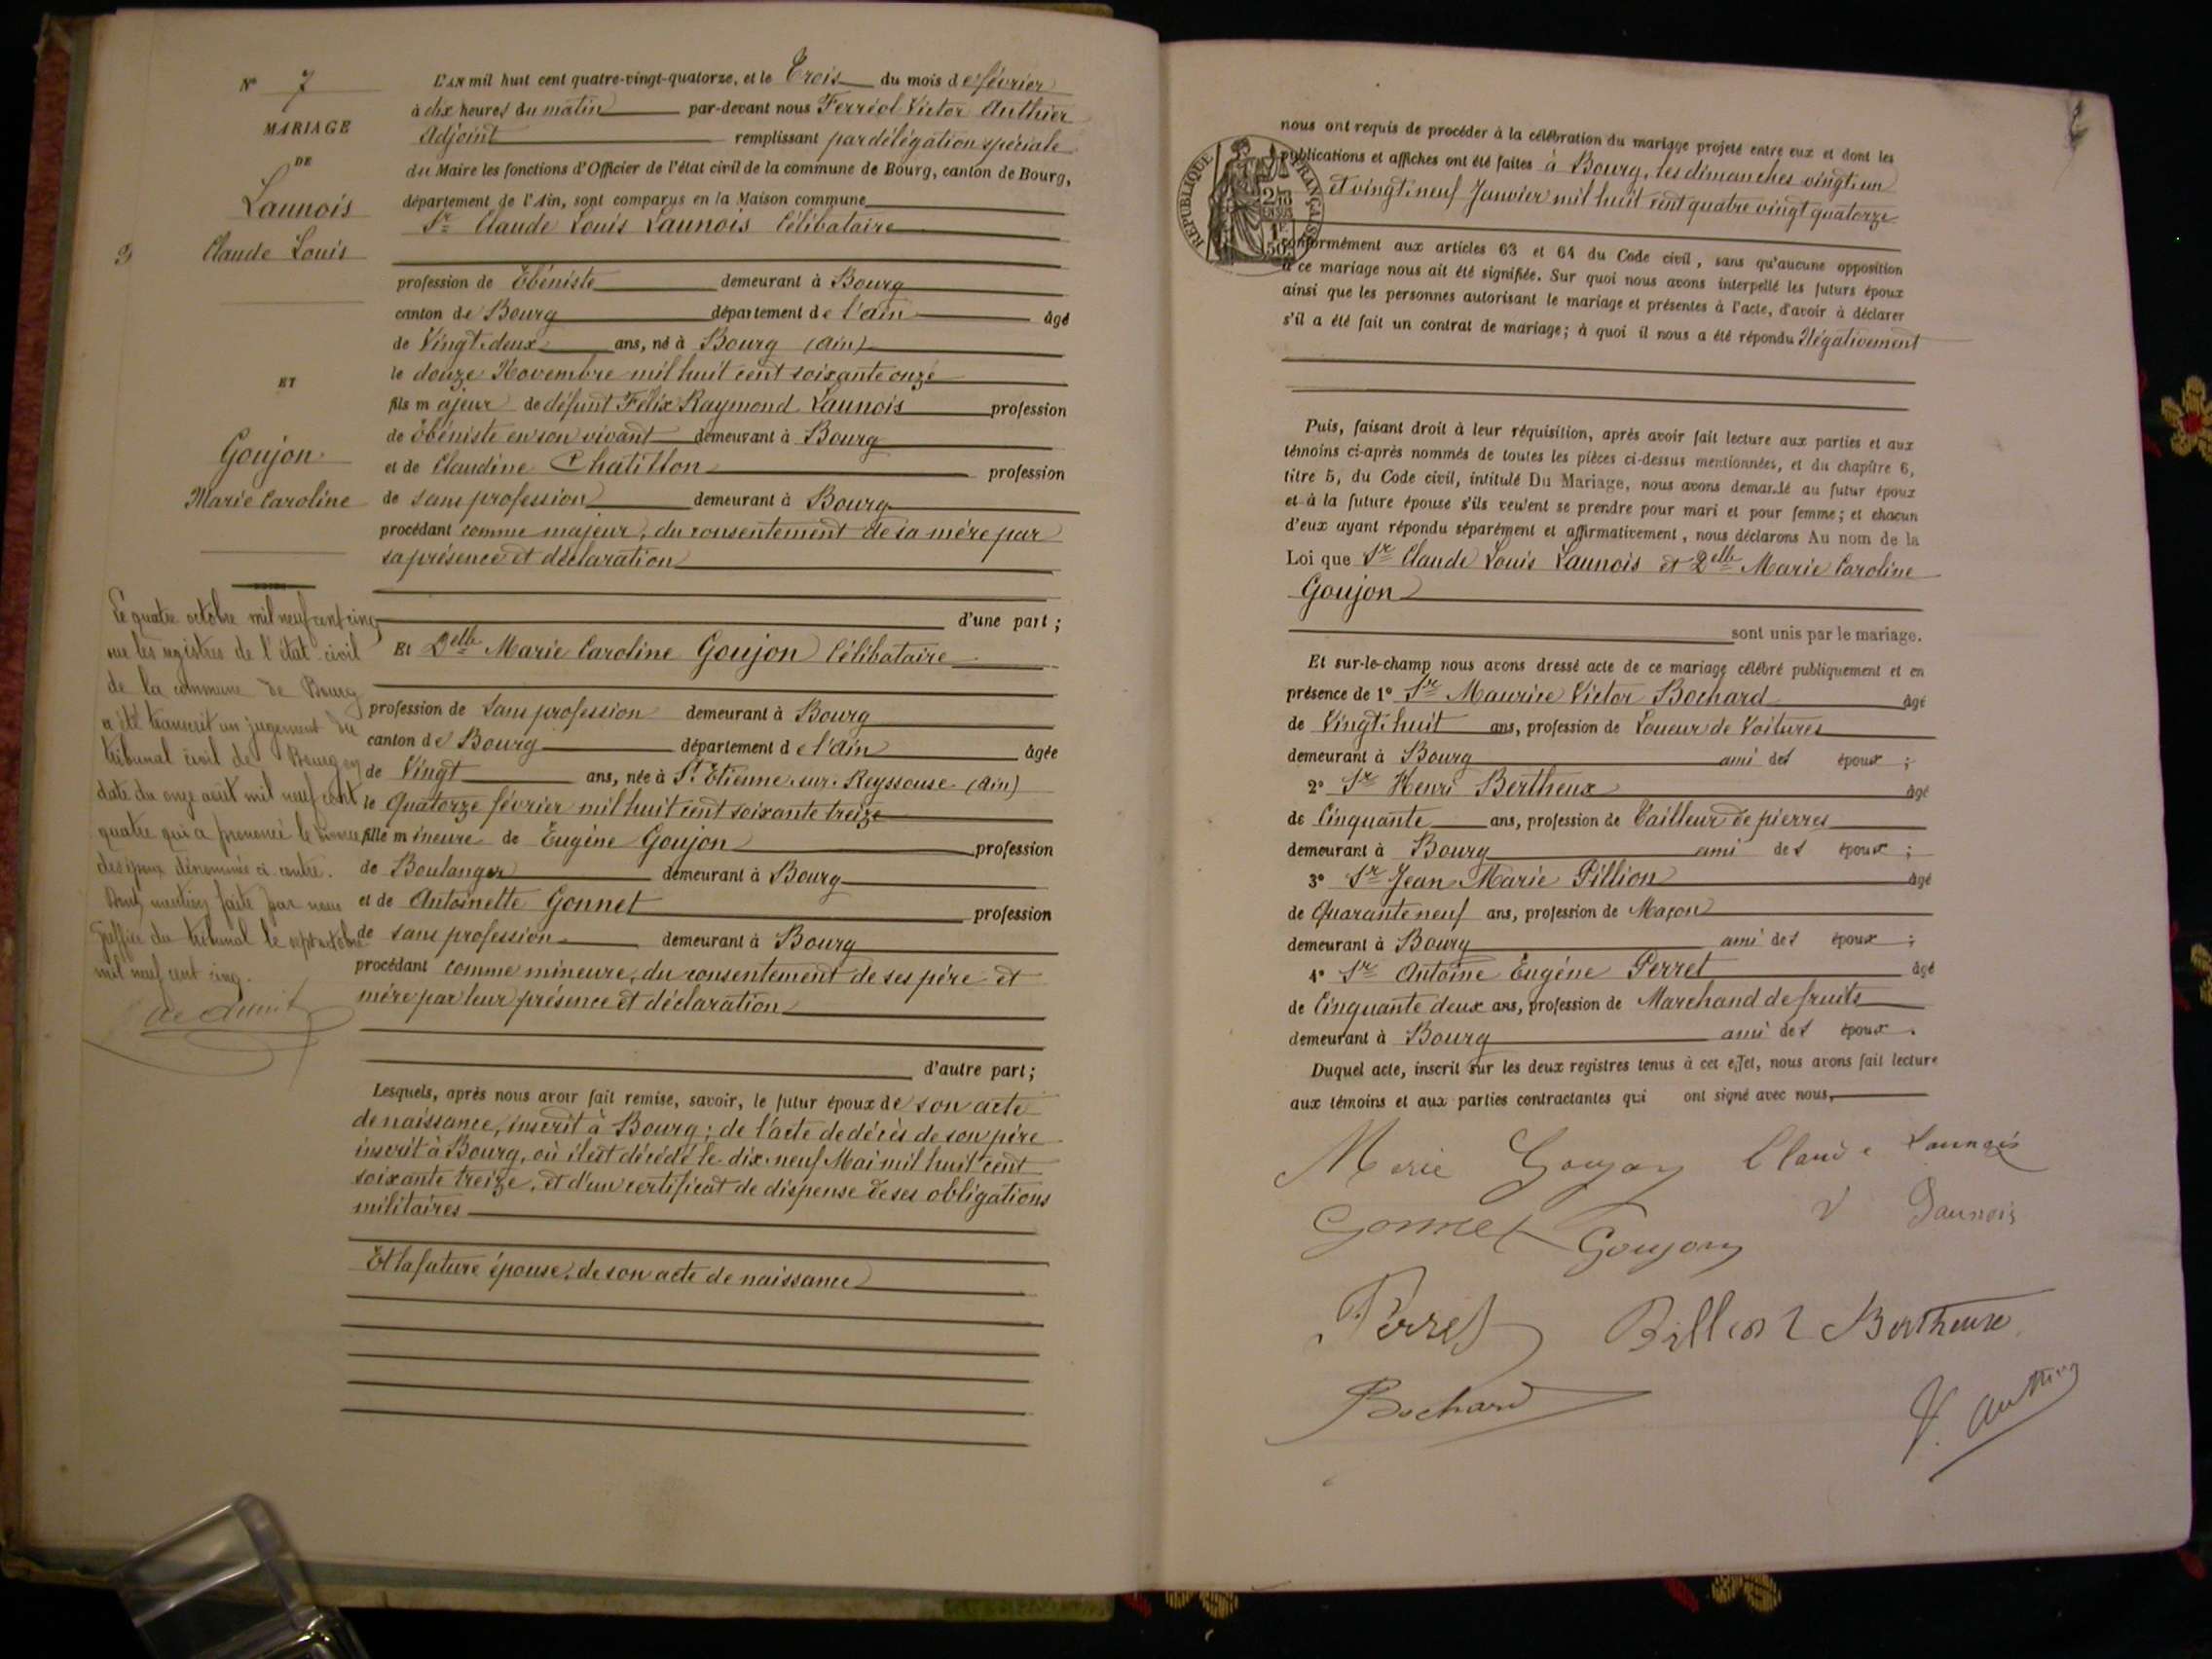 N° 7
MARIAGE
DE
Launois
Claude Louis
ET
Goujon
Marie Caroline
Le quatre octobre mil neuf cent cinq
sur les registres de l'état civil
de la commune de Bourg
a été transcrit un jugement du
tribunal civil de Bourg en
date du onze août mil neuf cent
quatre qui a prononcé le divorce
des époux dénommés ci contre.
Dont mention faite par nous
Greffier du tribunal le sept octobre
mil neuf cent cinq.
L'AN mil huit cent quatre-vingt-quatorze, et le Trois du mois de février
à dix heures du matin par-devant nous Ferréol Victor Authier
Adjoint remplissant par délégation spéciale
du Maire les fonctions d'Officier de l'état civil de la commune de Bourg, canton de Bourg,
département de l'Ain, sont comparus en la Maison commune
Sr Claude Louis Launois Célibataire
profession de Ébéniste demeurant à Bourg
canton de Bourg département de l'ain âgé
de Vingt-deux ans, né à Bourg (ain)
le douze Novembre mil huit cent soixante onze
fils majeur de défunt Félix Raymond Launois profession
de Ébéniste en son vivant demeurant à Bourg
et de Claudine Chatillon profession
de sans profession demeurant à Bourg
procédant comme majeur, du consentement de sa mère par
sa présence et déclaration
d'une part ;
Et Delle Marie Caroline Goujon Célibataire
profession de Sans profession demeurant à Bourg
canton de Bourg département de l'Ain âgée
de Vingt ans, née à St Etienne-sur-Reyssouse (Ain)
le Quatorze février mil huit cent soixante treize
fille mineure de Eugène Goujon profession
de Boulanger demeurant à Bourg
et de Antoinette Gonnet profession
de sans profession demeurant à Bourg
procédant comme mineure, du consentement de ses père et
mère par leur présence et déclaration
d'autre part ;
Lesquels, après nous avoir fait remise, savoir, le futur époux de son acte
de naissance, inscrit à Bourg ; de l'acte de décès de son père
inscrit à Bourg, où il est décédé le dix-neuf Mai mil huit cent
soixante treize, et d'un certificat de dispense de ses obligations
militaires
Et la future épouse, de son acte de naissance
RÉPUBLIQUE FRANÇAISE
nous ont requis de procéder à la célébration du mariage projeté entre eux et dont les
publications et affiches ont été faites à Bourg, les dimanches vingt-un
et vingt-neuf Janvier mil huit cent quatre vingt quatorze
conformément aux articles 63 et 64 du Code civil, sans qu'aucune opposition
à ce mariage nous ait été signifiée. Sur quoi nous avons interpellé les futurs époux
ainsi que les personnes autorisant le mariage et présentes à l'acte, d'avoir à déclarer
s'il a été fait un contrat de mariage; à quoi il nous a été répondu Négativement
Puis, faisant droit à leur réquisition, après avoir fait lecture aux parties et aux
témoins ci-après nommés de toutes les pièces ci-dessus mentionnées, et du chapitre 6,
titre 5, du Code civil, intitulé Du Mariage, nous avons demandé au futur époux
et à la future épouse s'ils veulent se prendre pour mari et pour femme; et chacun
d'eux ayant répondu séparément et affirmativement, nous déclarons Au nom de la
Loi que Sr Claude Louis Launois et Delle Marie Caroline
Goujon
sont unis par le mariage.
Et sur-le-champ nous avons dressé acte de ce mariage célébré publiquement et en
présence de 1° Sr Maurice Victor Bochard âgé
de Vingt-huit ans, profession de Loueur de Voitures
demeurant à Bourg ami des époux ;
2° Sr Henri Bertheux âgé
de Cinquante ans, profession de Tailleur de pierres
demeurant à Bourg ami des époux ;
3° Sr Jean Marie Pillion âgé
de Quarante neuf ans, profession de Maçon
demeurant à Bourg ami des époux ;
4° Sr Antoine Eugène Perret âgé
de Cinquante deux ans, profession de Marchand de fruits
demeurant à Bourg ami des époux.
Duquel acte, inscrit sur les deux registres tenus à cet effet, nous avons fait lecture
aux témoins et aux parties contractantes qui ont signé avec nous,
Marie Goujon Claude Launois
V Launois
Gonnet Goujon
Perret Pillion Bertheux
Bochard
V. Authier